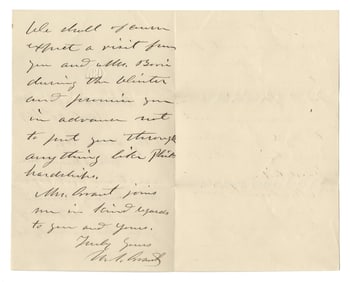 We shall of course
expect a visit from
you and Mrs. Borie
during the Winter
and promise you
in advance not
to put you through
anything like Phila
hardships.
Mrs. Grant joins
me in kind regards
to you and yours.
Truly Yours
U. S. Grant